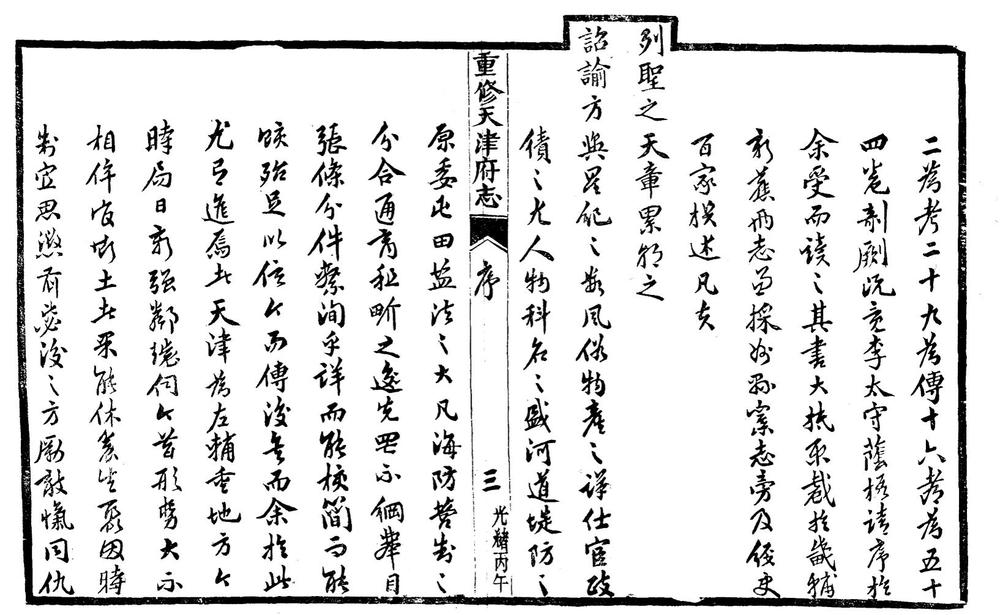 二為考二十九為傳十六為五十
四卷剞劂既竟李太守蔭梧請序於
余受而讀之其書大抵取裁於畿輔
新舊兩志兼採州縣案志旁及經史
百家撰述凡夫
列聖之天章累朝之
詔諭方輿星紀之數風俗物產之詳仕宦政
績之尤人物科名之盛河道堤防之
重修天津府志 序 三 光緒丙午
原委屯田鹽法之大凡海防營制之
分合通商租界之先罔不綱舉目
張條分件繫洵乎詳而能核簡而能
賅殆足以信今而傳後矣而余於此
尤有進焉者天津為左輔重地方今
時局日新強鄰環伺今昔形勢大不
相侔官斯土者果能休養生聚因時
制宜思懲前毖後之方勵敵愾同仇